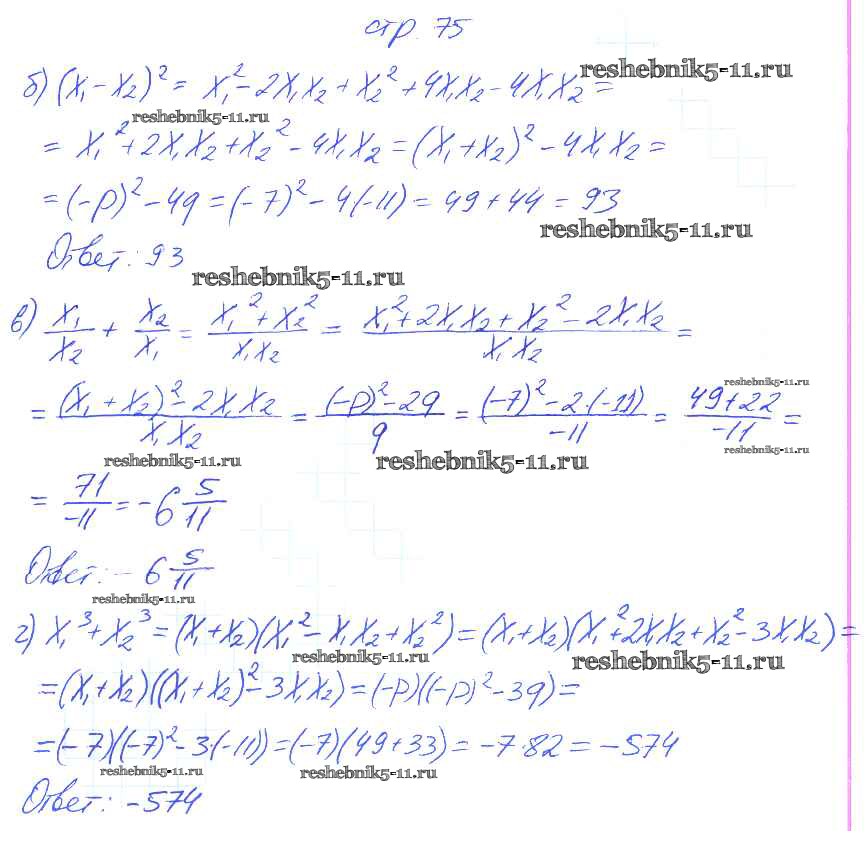 стр. 75
б) (x₁ - x₂)² = x₁² - 2x₁x₂ + x₂² + 4x₁x₂ - 4x₁x₂ =
reshebnik5-11.ru
reshebnik5-11.ru
= x₁² + 2x₁x₂ + x₂² - 4x₁x₂ = (x₁ + x₂)² - 4x₁x₂ =
= (-p)² - 4q = (-7)² - 4(-11) = 49 + 44 = 93
reshebnik5-11.ru
Ответ: 93
reshebnik5-11.ru
в) x₁/x₂ + x₂/x₁ = (x₁² + x₂²)/(x₁x₂) = (x₁² + 2x₁x₂ + x₂² - 2x₁x₂)/(x₁x₂) =
reshebnik5-11.ru
= ((x₁ + x₂)² - 2x₁x₂)/(x₁x₂) = ((-p)² - 2q)/q = ((-7)² - 2·(-11))/(-11) = (49 + 22)/(-11) =
reshebnik5-11.ru
reshebnik5-11.ru
reshebnik5-11.ru
= 71/(-11) = -6 5/11
Ответ: -6 5/11
reshebnik5-11.ru
г) x₁³ + x₂³ = (x₁ + x₂)(x₁² - x₁x₂ + x₂²) = (x₁ + x₂)(x₁² + 2x₁x₂ + x₂² - 3x₁x₂) =
reshebnik5-11.ru
reshebnik5-11.ru
= (x₁ + x₂)((x₁ + x₂)² - 3x₁x₂) = (-p)((-p)² - 3q) =
= (-7)((-7)² - 3(-11)) = (-7)(49 + 33) = -7·82 = -574
reshebnik5-11.ru
reshebnik5-11.ru
Ответ: -574